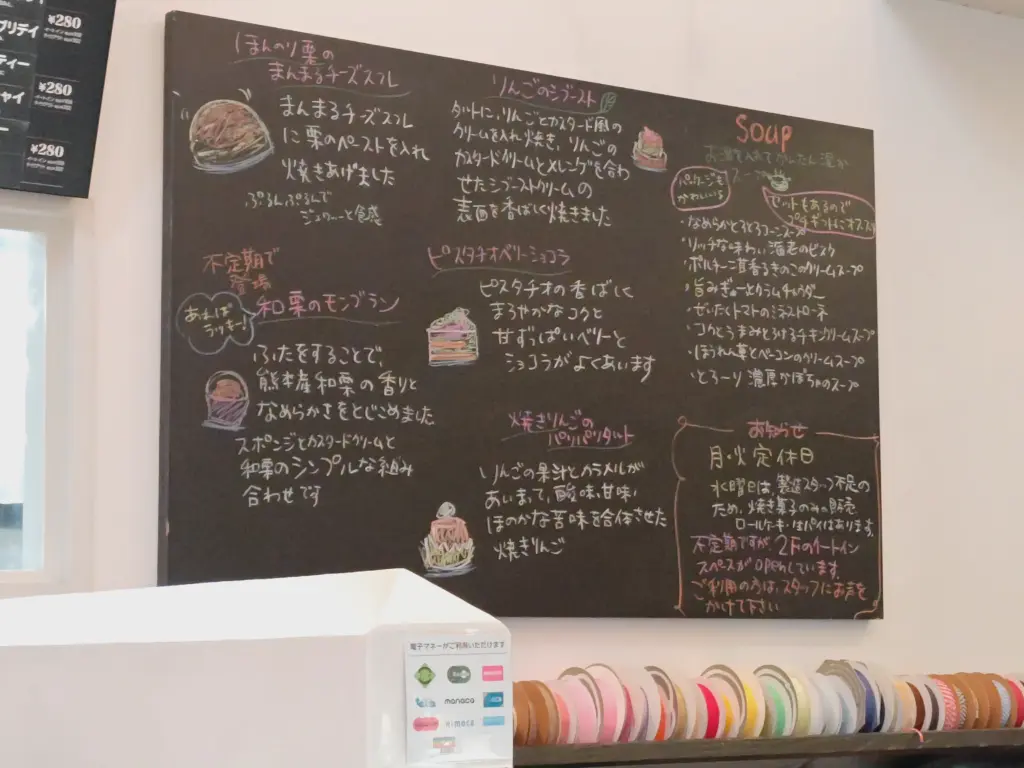 ¥280
¥280
¥280
ティー
ほんのり栗の
まんまるチーズスフレ
まんまるチーズスフレ
に栗のペーストを入れ
焼きあげました
ぷるんぷるんで
ジュワ〜ッと食感
不定期で
登場
あえば
ラッキー!
和栗のモンブラン
ふたをすることで、
熊本産和栗の香りと
なめらかさをとじこめました
スポンジとカスタードクリームと
和栗のシンプルな組み
合わせです
りんごのシブースト
タルトに、りんごとカスタード風の
クリームを入れ焼き、りんごの
カスタードクリームとメレンゲを合わ
せたシブーストクリームの
表面を香ばしく焼きました
ピスタチオベリーショコラ
ピスタチオの香ばしく
まろやかなコクと
甘ずっぱいベリーと
ショコラがよくあいます
焼きりんごの
パリパリタルト
りんごの果汁とカラメルが
あいまって、酸味、甘味、
ほのかな苦味を合体させた
焼きりんご
Soup
お湯を入れてかんたん温か
スープ
パッケージも
かわいい!
セットもあるので
プチギフトにオススメ
・なめらかとろとろコーンスープ
・リッチな味わい海老のビスク
・ポルチーニ茸香るきのこのクリームスープ
・旨みぎゅーっとクラムチャウダー
・ぜいたくトマトのミネストローネ
・コクとうまみとろけるチキンクリームスープ
・ほうれん草とベーコンのクリームスープ
・とろーり濃厚かぼちゃのスープ
お知らせ
月・火定休日
水曜日は、製造スタッフ不足の
ため、焼き菓子のみの販売
ロールケーキ・はパイはあります。
不定期ですが、2Fのイートイン
スペースがopenしています。
ご利用の方は、スタッフにお声を
かけて下さい
電子マネーがご利用いただけます
manaca
nimoca